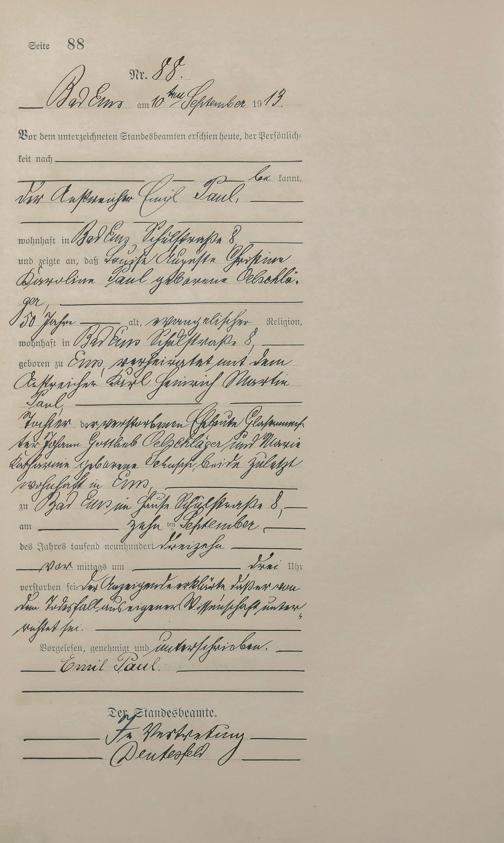 Seite 88
Nr. 88.
Bad Ems am 10ten September 1913.
Vor dem unterzeichneten Standesbeamten erschien heute, der Persönlich-
keit nach
be kannt,
der Anstreicher Emil Paul,
wohnhaft in Bad Ems, Schulstraße 8,
und zeigte an, daß Louise Auguste Christine
Karoline Paul geborene Oelschlä-
ger,
50 Jahre alt, evangelischer Religion,
wohnhaft in Bad Ems Schulstraße 8,
geboren zu Ems, verheiratet mit dem
Anstreicher Karl Heinrich Martin
Paul,
Tochter der verstorbenen Eheleute
ter Johann Gottlieb Oelschläger und Marie
Katharine geborene beide zuletzt
wohnhaft in Ems,
zu Bad Ems im Hause Schulstraße 8,
am zehnten September
des Jahres tausend neunhundert dreizehn
vor mittags um drei Uhr
verstorben sei. Der Anzeigende erklärte daß er von
dem Todesfall aus eigener Wissenschaft unter-
richtet sei.
Vorgelesen, genehmigt und unterschrieben.
Emil Paul.
Der Standesbeamte.
In Vertretung